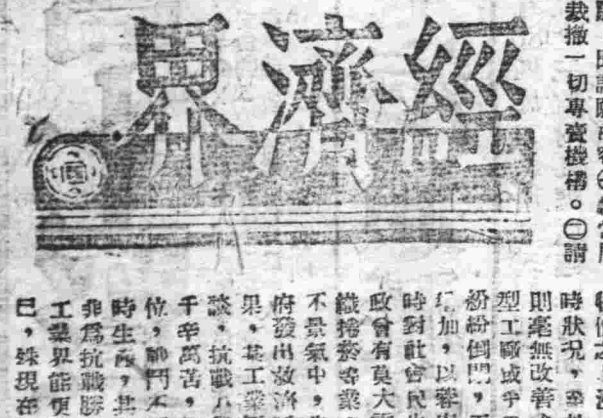 經濟界
裁撤一切專營機構。㊁請
時狀況，
則毫無改善
型工廠或
紛紛倒閉，
加，以
時對社會民
政會有莫大
織捲菸等業
不景氣中，
府發出救濟
果，某工業
談，抗戰八
千辛萬苦，
位，戰鬥不
時生產，其
非爲抗戰勝
工業界能更
已，殊現在